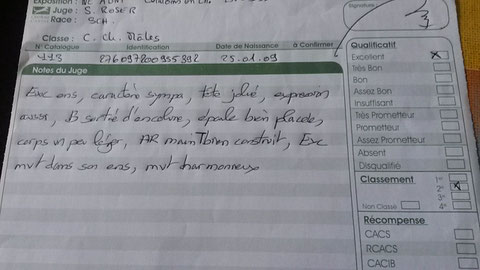 Exposition :
Juge : S. ROSER
Race : SCH.
Signature :
Classe : C. Ch. Mâles
N° Catalogue Identification Date de Naissance à Confirmer
276097200955392 25.01.09
Notes du Juge
Exc ens, caractère sympa, tête jolie, expression
B sortie d'encolure, épaule bien placée,
corps un peu léger, AR main bien construit, Exc
mvt dans son ens, mvt harmonieux
Qualificatif
Excellent x
Très Bon
Bon
Assez Bon
Insuffisant
Très Prometteur
Prometteur
Assez Prometteur
Absent
Disqualifié
Classement 1er
2e x
3e
Non Classé 4e
Récompense
CACS
RCACS
CACIB